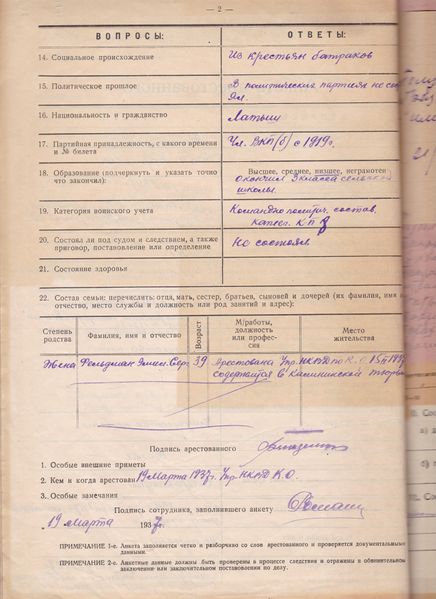 — 2 —
ВОПРОСЫ: ОТВЕТЫ:
14. Социальное происхождение Из крестьян батраков
15. Политическое прошлое В политических партиях не сост
ял.
16. Национальность и гражданство Латыш
17. Партийная принадлежность, с какого времени
и № билета Чл. ВКП(б) с 1919г.
18. Образование (подчеркнуть и указать точно
что закончил): Высшее, среднее, низшее, неграмотен
окончил 3 класса сельской
школы.
19. Категория воинского учета Командно политич. состав,
20. Состоял ли под судом и следствием, а также
приговор, постановление или определение Не состоял
21. Состояние здоровья
22. Состав семьи: перечислить: отца, мать, сестер, братьев, сыновей и дочерей (их фамилия, имя и
отчество, место службы и должность или род занятий и адрес):
Степень
родства
Фамилия, имя и отчество
Возраст
М/работы,
должность
или профес-
сия
Место
жительства
Жена Фельдман Эмил. Сер. 39 Арестована Упр. НКВД по К.О. 15/III 193
содержится в Калининской тюрьме
Подпись арестованного
1. Особые внешние приметы
2. Кем и когда арестован 19 Марта 1937г. Упр. НКВД К.О.
3. Особые замечания
Подпись сотрудника, заполнившего анкету
„19 марта 1937г.
ПРИМЕЧАНИЕ 1-е. Анкета заполняется четко и разборчиво со слов арестованного и проверяется документальными
данными.
ПРИМЕЧАНИЕ 2-е. Анкетные данные должны быть проверены в процессе следствия и отражены в обвинительном
заключении или заключительном постановлении по делу.